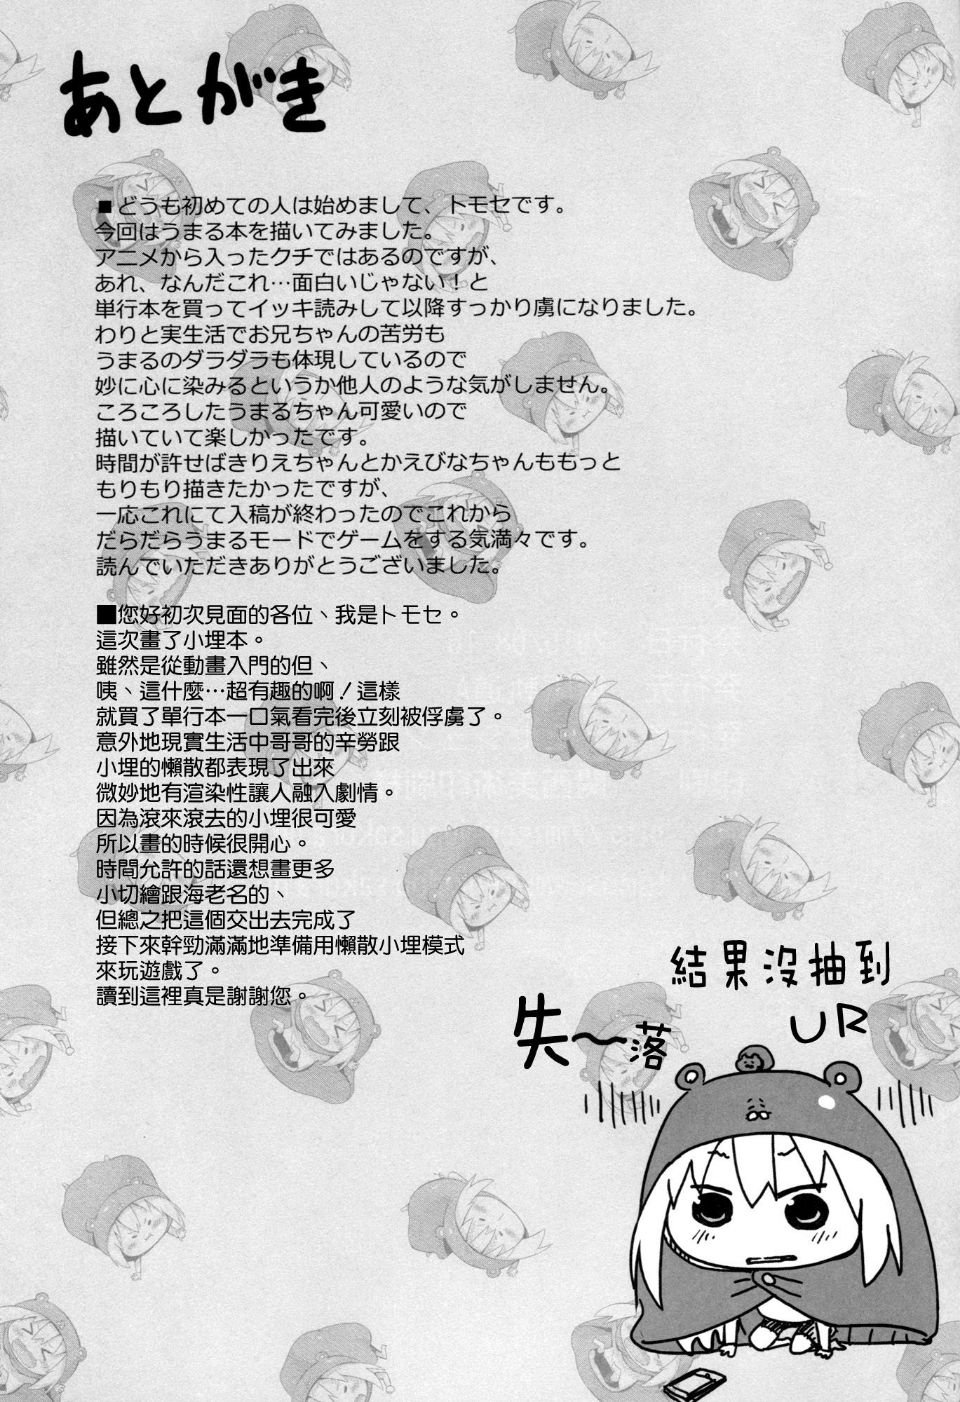 あとがき
■どうも初めての人は始めまして、トモセです。
今回はうまる本を描いてみました。
アニメから入ったクチではあるのですが、
あれ、なんだこれ…面白いじゃない！と
単行本を買ってイッキ読みして以降すっかり虜になりました。
わりと実生活でお兄ちゃんの苦労も
うまるのダラダラも体現しているので
妙に心に染みるというか他人のような気がしません。
ころころしたうまるちゃん可愛いので
描いていて楽しかったです。
時間が許せばきりえちゃんとかえびなちゃんももっと
もりもり描きたかったですが、
一応これにて入稿が終わったのでこれから
だらだらうまるモードでゲームをする気満々です。
読んでいただきありがとうございました。
■您好初次見面的各位、我是トモセ。
這次畫了小埋本。
雖然是從動畫入門的但、
咦、這什麼…超有趣的啊！這樣
就買了單行本一口氣看完後立刻被俘虜了。
意外地現實生活中哥哥的辛勞跟
小埋的懶散都表現了出來
微妙地有渲染性讓人融入劇情。
因為滾來滾去的小埋很可愛
所以畫的時候很開心。
時間允許的話還想畫更多
小切繪跟海老名的、
但總之把這個交出去完成了
接下來幹勁滿滿地準備用懶散小埋模式
來玩遊戲了。
讀到這裡真是謝謝您。
結果沒抽到
UR
失～落